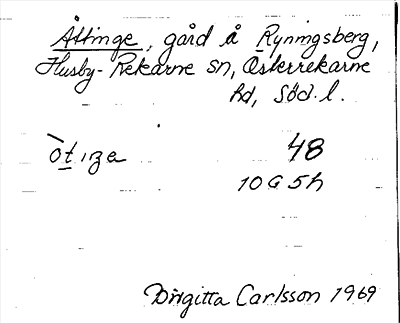 Åttinge, gård å Ryningsberg,
Husby-Rekarne sn, Österrekarne
hd, Söd. l.
48
10 G 5h
Birgitta Carlsson 1969